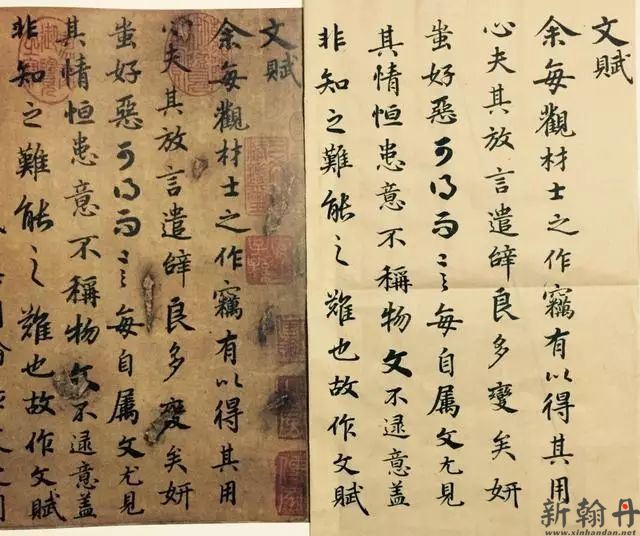 文賦
余每觀材士之作竊有以得其用
心夫其放言遣辭良多變矣妍
蚩好惡可得而言每自屬文尤見
其情恒患意不稱物文不逮意蓋
非知之難能之難也故作文賦
文賦
余每觀材士之作竊有以得其用
心夫其放言遣辭良多變矣妍
蚩好惡可得而言每自屬文尤見
其情恒患意不稱物文不逮意蓋
非知之難能之難也故作文賦
新翰丹
www.xinhandan.net